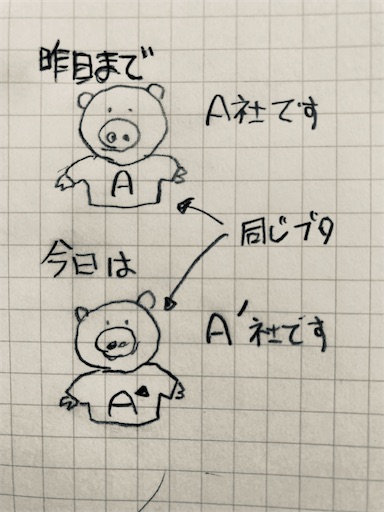 昨日まで
A社です
A
同じブタ
今日は
A'社です
A'